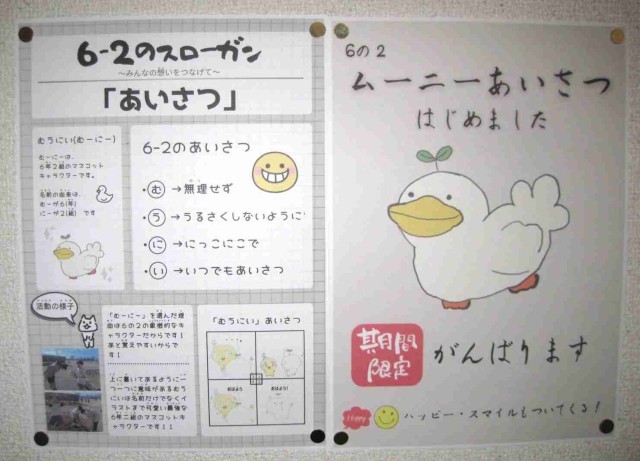 6-2のスローガン
～みんなの想いをつなげて～
「あいさつ」
むうにい(むーにー)
むーにーは、
6年2組のマスコット
キャラクターです。
名前の由来は、
むーが6(年)
にーが2(組) です
6-2のあいさつ
・む→無理せず
・う→うるさくしないように
・に→にっこにこで
・い→いつでもあいさつ
活動の様子
「むーにー」を選んだ理
由は6の2の象徴的なキ
ャラクターだからです！
あと覚えやすいからで
す！
上に書いてあるように一
つ一つに意味があるむう
にいは名前だけでなくイ
ラストまで可愛い最強な
6年二組のマスコットキャ
ラクターです！！
「むうにい」あいさつ
おはよう
おはよう!
6の2
ムーニーあいさつ
はじめました
期間
限定
がんばります
Happy
ハッピー・スマイルもついてくる！